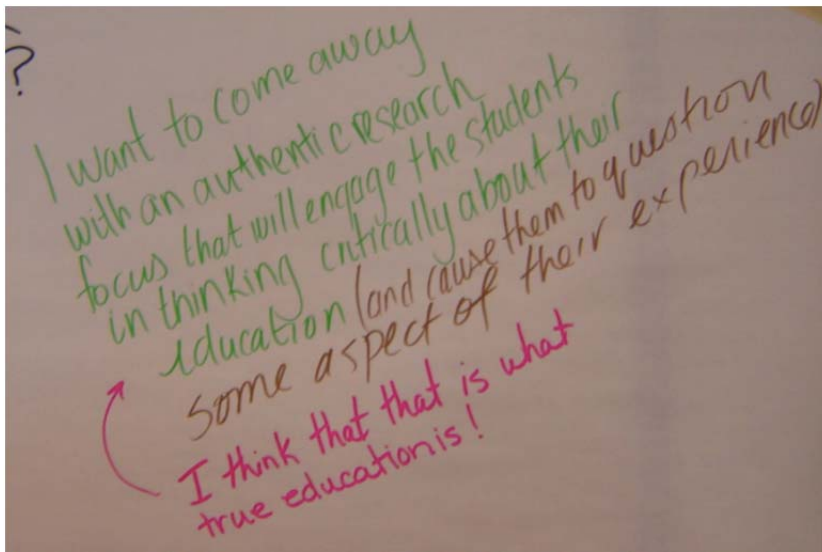 ?
I want to come away
with an authentic research
focus that will engage the students
in thinking critically about their
education (and cause them to question
some aspect of their experience)
I think that that is what
true education is!